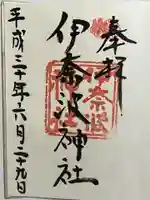 奉拝
伊奈波神社
平成三十年六月二十九日